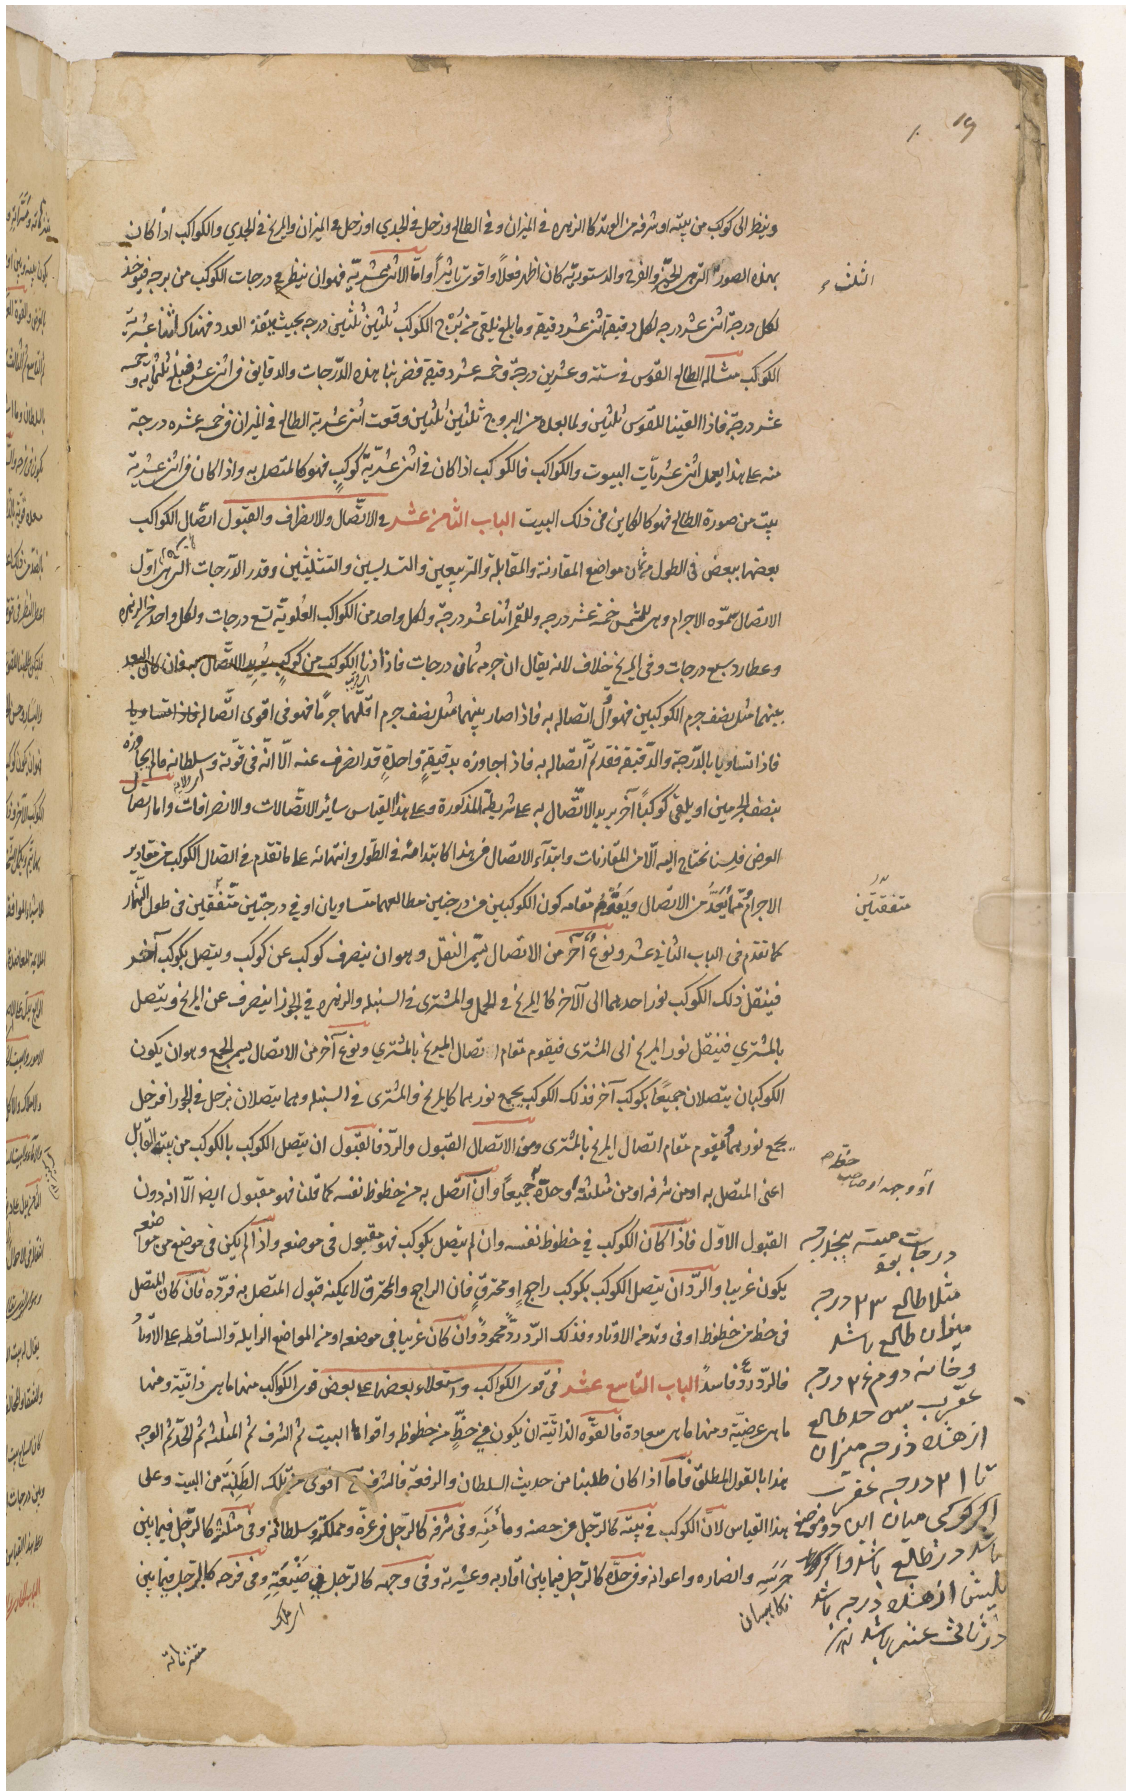 وينظر الى كوكب من بيته او شرفه من الوتد كالزهره في الميزان وفى الطالع وزحل فى الجدي او زحل فى الميزان والمريخ فى الجدي والكواكب اذا كان
بهذه الصور الثلث وهى الحيز والفرح والدستوريّه كان اظهر فعلاً واقوى تاثيراً وامّا الاثنى عشريّه فهو ان ينظر فى درجات الكوكب من برجه فيؤخذ
لكل درجة اثنى عشر درجه لكل دقيقة اثنى عشر دقيقه وما بلغ يلقى من برج الكوكب ثلثين ثلثين درجه بحيث ينفذ العدد فهناك اثنا عشريّة
الكوكب مثاله الطالع القوس فى ستة وعشرين درجة وخمسه عشر دقيقة فضربنا هذه الدّرجات والدقايق فى اثنى عشر فبلغ ثلثمائه وخمسه
عشر درجة فاذا القينا للقوس ثلثين ولما بعده من البروج ثلثين ثلثين وقعت اثنى عشرية الطالع فى الميزان فى خمسة عشره درجة
منه على هذا يعمل اثنى عشريّات البيوت والكواكب فالكوكب اذا كان فى اثنى عشريّة كوكبٍ فهو كالمتصل به واذا كان فى اثنى عشرية
بيت من صورة الطالع فهو كالكاين فى ذلك البيت الباب الثامن عشر فى الاتّصال والانصراف والقبول اتصال الكواكب
بعضها ببعض فى الطول من ثمان مواضع المقارنة والمقابلة والتربيعين والتسديسين والتثليثين وقدر الدّرجات التى هى اول
الاتصال سمّوه الاجرام وهى للشمس خمسة عشر درجه وللقمر اثنا عشر درجة ولكل واحد من الكواكب العُلويّة تسع درجات ولكل واحد من الزهره
وعطارد سبع درجات وفى المريخ خلاف لانه يقال ان جرمه ثمان درجات فاذا دنا الكوكب من كوكبٍ يريد الاتّصال به فان كان البعد
بينهما مثل نصف جرم الكوكبين فهو اول اتصاله به فاذا صار بينهما مثل نصف جرم اقلّهما جرماً فهو فى اقوى اتّصاله
فاذا تساويا بالدّرجة والدّقيقة فقد تمّ اتّصاله به فاذا جاوزه بدقيقةٍ واحدةٍ قد انصرف عنه الّا انّه فى قوّته وسلطانه ما لم يجاوزه
بنصف الجرمين او يلقى كوكباً آخر يريد الاتّصال به على شريطة المذكورة وعلى هذا القياس ساير الاتّصالات والانصرافات واما اتصال
العرض فلسنا نحتاج اليه الّا من المقارنات وابتداء الاتصال من هذا كابتدائه فى الطّول وانتهائه على ما تقدم فى اتصال الكوكب من مقادير
الاجرام وممّا يُعدّ من الاتصال ويَقوُم مقامه كون الكوكبين من درجتين مطالعهما متساويان او فى درجتين متّفقتين فى طول النّهار
كما تقدم فى الباب الثانى عشر ونوعٌ آخر من الاتصال يسمّى النقل وهو ان ينصرف كوكب عن كوكب ويتصل بكوكب آخر
فينقل ذلك الكوكب نور احدهما الى الآخر كالمريخ فى الحمل والمشترى فى السنبله والزهره فى الجوزا ينصرف عن المريخ ويتصل
بالمشتري فينقل نور المريخ الى المشترى فيقوم مقام اتصال المريخ بالمشتري ونوع آخر من الاتصال يسمى الجمع وهو ان يكون
الكوكبان يتصلان جميعاً بكوكب آخر فذلك الكوكب يجمع نورهما كالمريخ والمشترى فى السنبله وهما يتصلان بزحل فى الجوزا فزحل
يجمع نورهما فيقوم مقام اتصال المريخ بالمشترى ومن الاتصال القبول والردّ فالقبول ان يتصل الكوكب بالكوكب من بيت القابل
اعنى المتصل به او من شرفه او من مثلثه او حدّه جميعاً وان اتصل به من حظوظ نفسه كما قلنا فهو مقبول ايضا الّا انه دون
القبول الاوّل فاذا كان الكوكب فى حظوظ نفسه وان لم يتصل بكوكب فهو مقبول فى موضعه واذا لم يكن فى موضع من مواضعه
يكون غريبا والردّ ان يتصل الكوكب بكوكب راجعٍ او محترقٍ فان الراجع والمحترق لا يمكنه قبول المتصل به فردّه فان كان المتصل
فى حظ من حظوظ او فى وتد من الاوتاد وفذلك الردّ ردّ محمودٌ وان كان غريبا فى موضعه او من المواضع الزايله والساقطه على الاوتاد
فالردّ ردّ فاسدٌ الباب التاسع عشر فى قوى الكواكب واستعلاء بعضها على بعض قوى الكواكب منها ما هى ذاتيّة ومنها
ما هى عرضيّة ومنها ما هى سعادة فالقوّه الذاتيّه ان يكون فى حظٍّ من حظوظه واقواها البيت ثم الشرف ثم المثلثه ثم الحدّ ثم الوجه
هذا بالقول المطلق فامّا اذا كان طلبنا من حديث السلطان والرفعة فالشرف اقوى من تلك الطَلِبَة من البيت وعلى
هذا القياس لان الكوكب فى بيته كالرّجل من حصنه ومأمَنِه وفى شرفه كالرّجل فى عزّه ومملكته وسلطانه وفى مثلثه كالرّجل فيما بين
حَرَسِه وانصاره واعوانه وفى حدّه كالرّجل فيما بين اقاربه وعشيرته وفى وجهه كالرّجل فى ضَيْعَتِه وفى فرحه كالرّجل فيما بين
متنزهاته
الثلث
متفقتين
او وجه او صاحب
درجات
مثلا طالع ٢٣ درجه
ميزان طالع باشد
وخانه دوم ٢٦ درجه
عقرب پس حد طالع
از هفده درجه ميزان
تا ٢١ درجه عقرب
اگر كوكبى ميان اين دو موضع
باشد در طالع باشد
بيش از هفده درجه باشد
نگاهبان